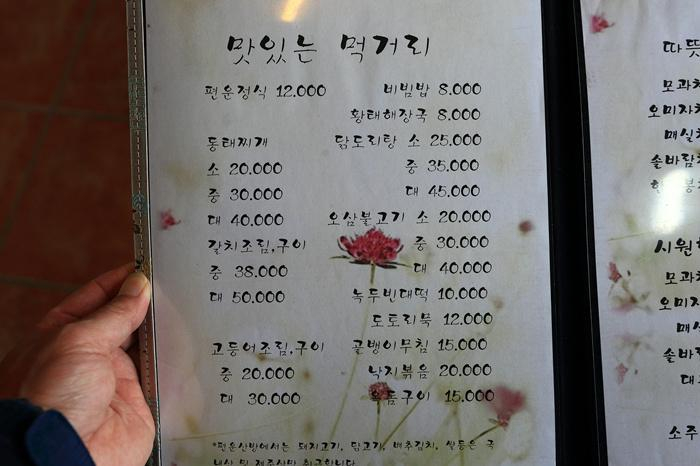 맛있는 먹거리
편운정식 12.000
비빔밥 8.000
황태해장국 8.000
동태찌개
소 20.000
중 30.000
대 40.000
갈치조림,구이
중 38.000
대 50.000
고등어조림,구이
중 20.000
대 30.000
닭도리탕 소 25.000
중 35.000
대 45.000
오삼불고기 소 20.000
중 30.000
대 40.000
녹두빈대떡 10.000
도토리묵 12.000
골뱅이무침 15.000
낙지볶음 20.000
구이 15.000
*편운산방에서는 돼지고기, 닭고기, 배추김치, 쌀등은 국
따뜻
모과차
오미자차
매실차
솔바람차
시원한
모과차
오미자
매실
솔바람
대
소주